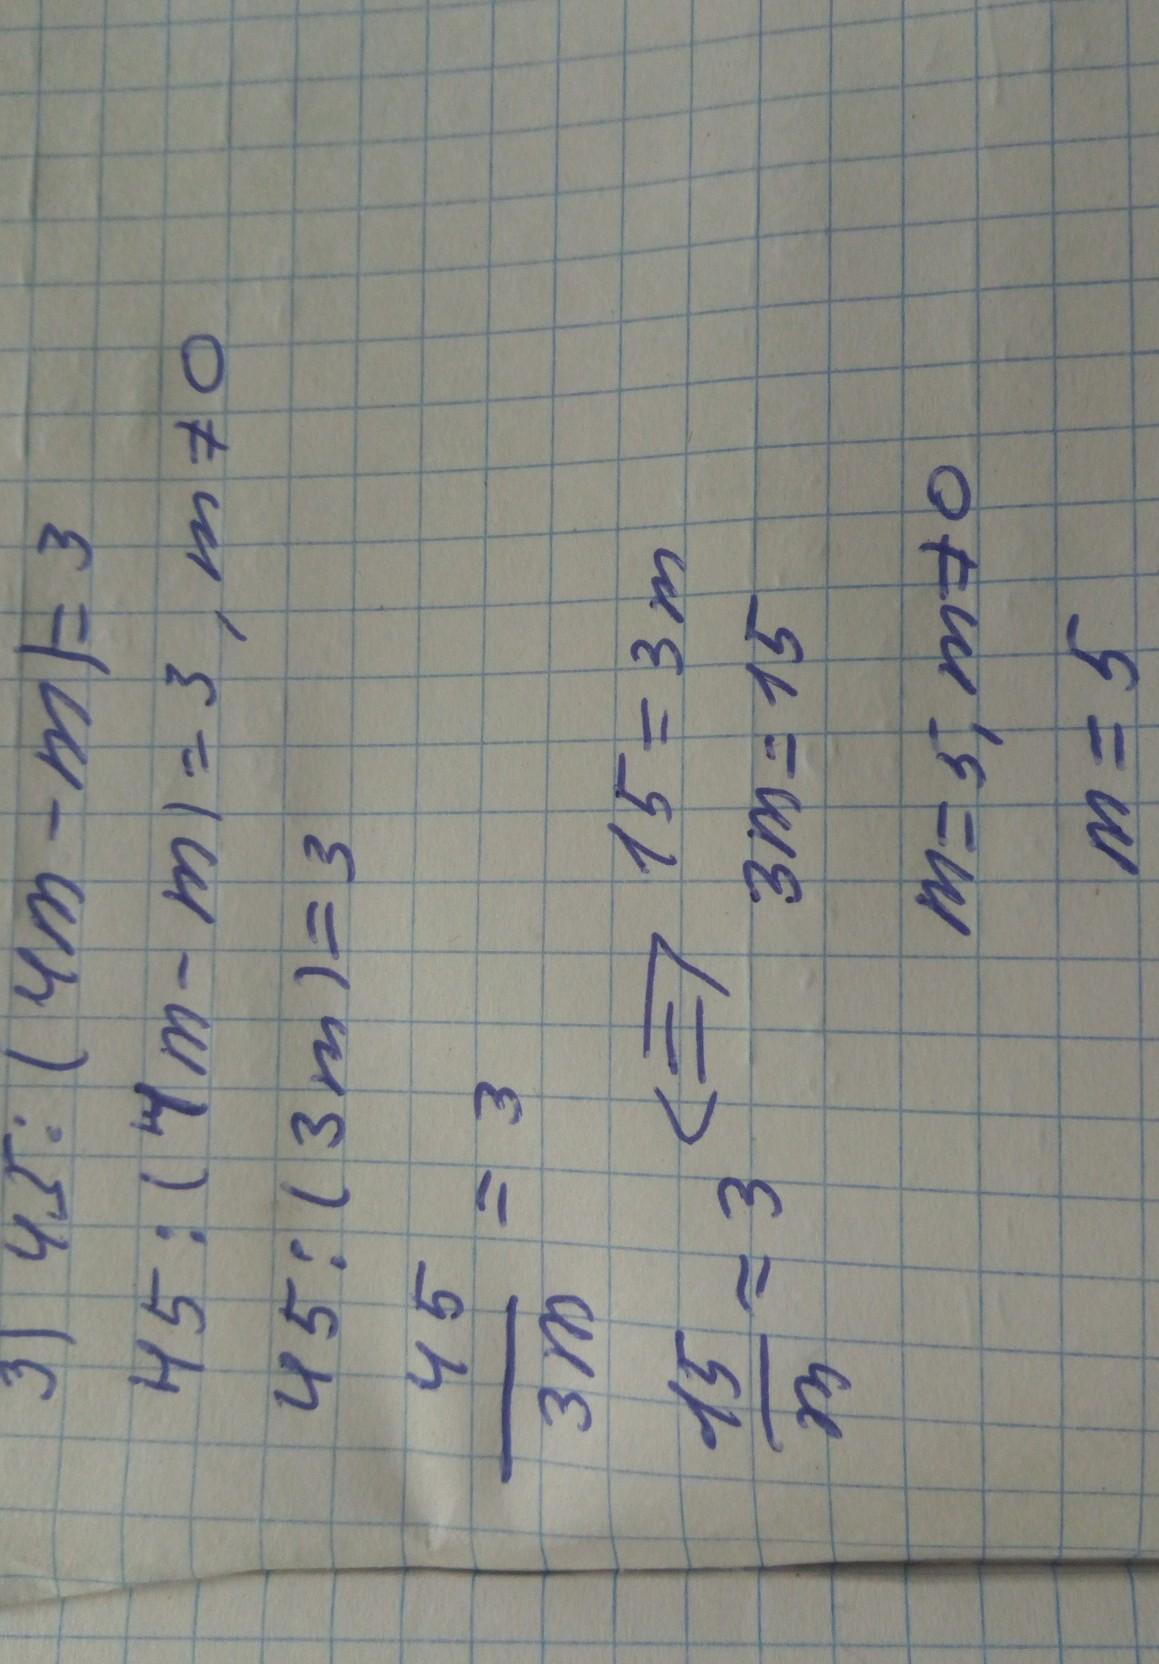 3) 45:(4m-m)=3
45:(4m-m)=3, m≠0
45:(3m)=3
45/3m = 3
15/m = 3 <=> 15=3m
3m=15
m=5, m≠0
m=5